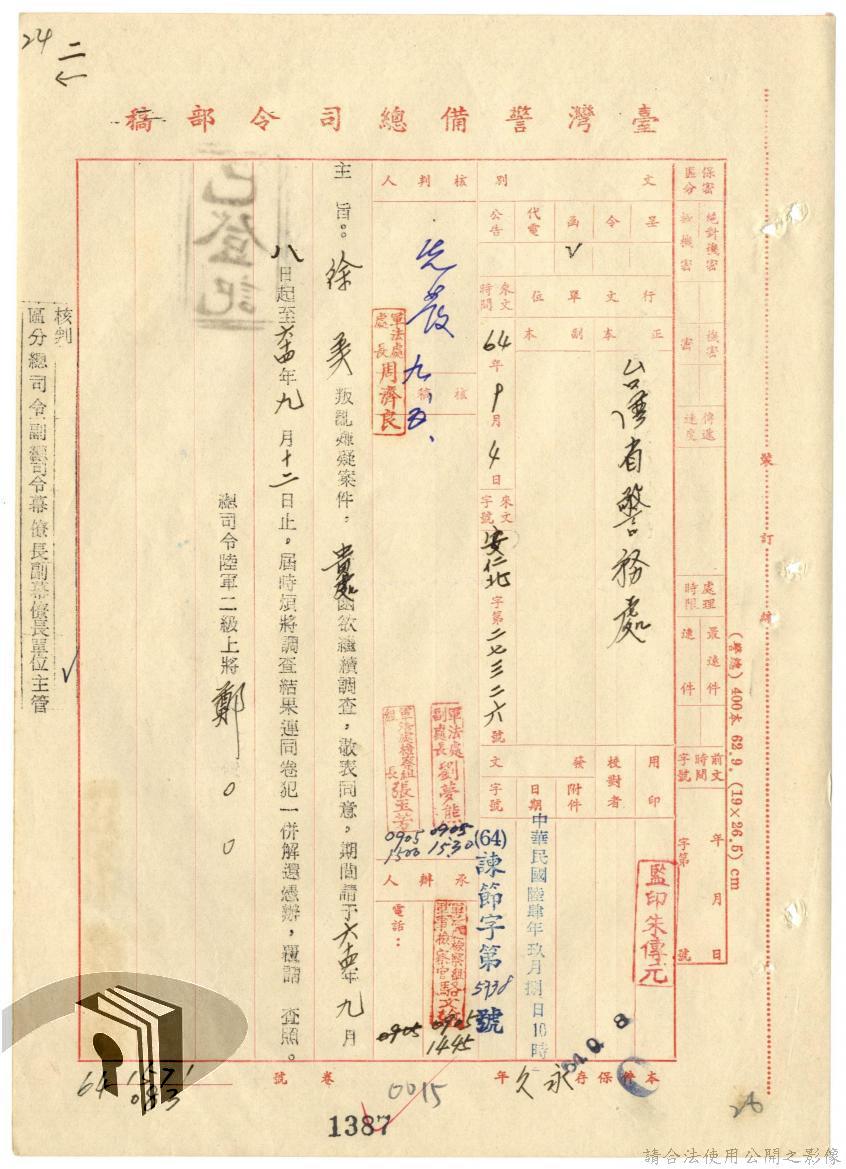 24
二
臺灣警備總司令部稿
保密區分
絕對機密
極機密
機密
密
傳遞速度
處理時限
最速件
速件
前文時間字號
年 月 日
字第 號
文別
呈
令
函
ˇ
代電
公告
行文單位
正本
副本
台灣省警務處
來文時間
64年9月4日
來文字號
安仁北字第二七三二六號
用印
校對者
監印朱傳元
發文
附件
日期
中華民國陸肆年玖月捌日16時
字號
(64)諫節字第5738號
核判人
先發 九、五、
核稿
軍法處處長周濟良
軍法處副處長劉夢熊
0905
1530
軍法處檢察組組長張玉芳
0905
1500
承辦人
電話：
0905
0905
1445
主旨：徐 美 叛亂嫌疑案件，貴處函欲繼續調查，敬表同意，期間請于六十四年九月
八日起至六十四年九月十二日止。屆時煩將調查結果連同卷犯一併解還憑辦，覆請 查照。
總司令陸軍二級上將鄭○○
已登記
核判區分 總司令 副總司令 幕僚長 副幕僚長 單位主管
ˇ
裝 訂 線
(警總) 400本 62.9. (19×26.5) cm
本件保存
永久
年
卷
號
0015
64 1571
083
1387
28
請合法使用公開之影像